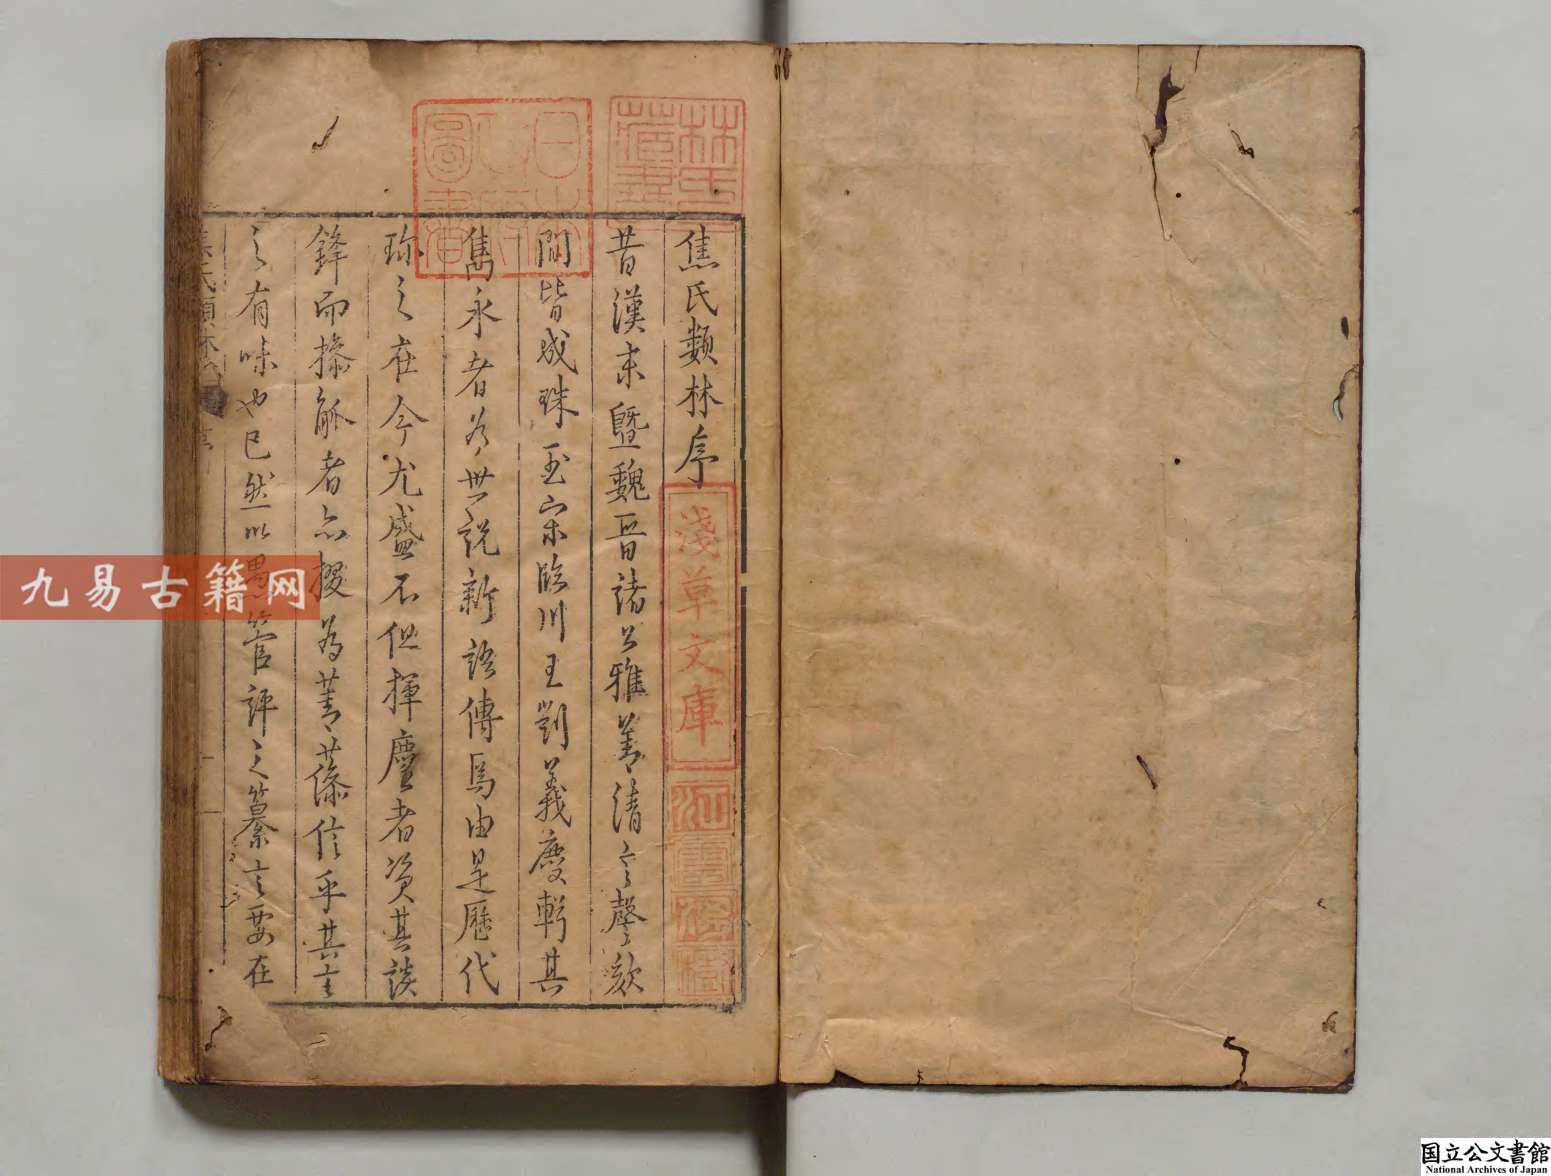 林氏藏書
日本政府圖書
焦氏類林序
淺草文庫
江雲渭樹
昔漢末曁魏晉諸公雅善清言謦欬
間皆成珠玉宋臨川王劉義慶輯其
雋永者為世說新語傳焉由是歷代
珍之在今尤盛不但揮麈者資其談
鋒而操觚者亦掇為菁藻信乎其言
之有味也已然以愚管評之纂言要在
焦氏類林
九易古籍网
国立公文書館
National Archives of Japan